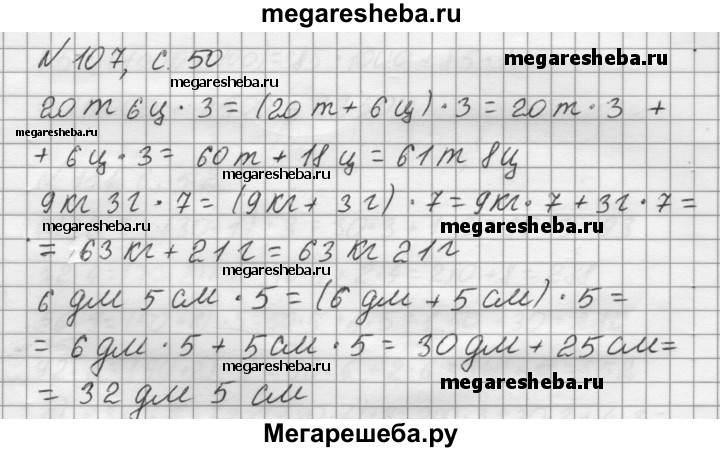 megaresheba.ru
№ 107, с. 50
megaresheba.ru
megaresheba.ru
20 т 6 ц · 3 = (20 т + 6 ц) · 3 = 20 т · 3 +
megaresheba.ru
+ 6 ц · 3 = 60 т + 18 ц = 61 т 8 ц
9 кг 3 г · 7 = (9 кг + 3 г) · 7 = 9 кг · 7 + 3 г · 7 =
megaresheba.ru
megaresheba.ru
= 63 кг + 21 г = 63 кг 21 г
megaresheba.ru
6 дм 5 см · 5 = (6 дм + 5 см) · 5 =
megaresheba.ru
= 6 дм · 5 + 5 см · 5 = 30 дм + 25 см =
megaresheba.ru
megaresheba.ru
= 32 дм 5 см
Мегарешеба.ру